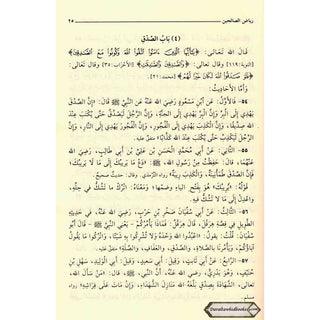 رياض الصالحين ٢٥
(٤) بَابُ الصِّدْقِ
قَالَ اللهُ تَعَالَى: ﴿يَا أَيُّهَا الَّذِينَ آمَنُوا اتَّقُوا اللهَ وَكُونُوا مَعَ الصَّادِقِينَ﴾
[التوبة: ١١٩] وقال تعالى: ﴿وَالصَّادِقِينَ وَالصَّادِقَاتِ﴾ [الأحزاب: ٣٥] وقال تعالى:
﴿فَلَوْ صَدَقُوا اللهَ لَكَانَ خَيْرًا لَهُمْ﴾ [محمد: ٢١].
وَأَمَّا الْأَحَادِيثُ:
٥٤- فَالْأَوَّلُ: عَنِ ابْنِ مَسْعُودٍ رَضِيَ اللهُ عَنْهُ عَنِ النَّبِيِّ ﷺ قَالَ: «إِنَّ الصِّدْقَ
يَهْدِي إِلَى الْبِرِّ وَإِنَّ الْبِرَّ يَهْدِي إِلَى الْجَنَّةِ، وَإِنَّ الرَّجُلَ لَيَصْدُقُ حَتَّى يُكْتَبَ عِنْدَ
اللهِ صِدِّيقًا، وَإِنَّ الْكَذِبَ يَهْدِي إِلَى الْفُجُورِ، وَإِنَّ الْفُجُورَ يَهْدِي إِلَى النَّارِ، وَإِنَّ
الرَّجُلَ لَيَكْذِبُ حَتَّى يُكْتَبَ عِنْدَ اللهِ كَذَّابًا»
٥٥- الثَّانِي: عَنْ أَبِي مُحَمَّدٍ الْحَسَنِ بْنِ عَلِيِّ بْنِ أَبِي طَالِبٍ، رَضِيَ اللهُ
عَنْهُمَا، قَالَ: حَفِظْتُ مِنْ رَسُولِ اللهِ ﷺ: «دَعْ مَا يَرِيبُكَ إِلَى مَا لَا يَرِيبُكَ؛
فَإِنَّ الصِّدْقَ طُمَأْنِينَةٌ، وَالْكَذِبَ رِيبَةٌ» رواه الترمذي، وقال: حديث صحيح.
قَوْلُهُ: «يَرِيبُكَ» هُوَ بِفَتْحِ الْيَاءِ وَضَمِّهَا؛ وَمَعْنَاهُ: اتْرُكْ مَا تَشُكُّ فِي حِلِّهِ،
وَاعْدِلْ إِلَى مَا لَا تَشُكُّ فِيهِ.
٥٦- الثَّالِثُ: عَنْ أَبِي سُفْيَانَ صَخْرِ بْنِ حَرْبٍ، رَضِيَ اللهُ عَنْهُ، فِي حَدِيثِهِ
الطَّوِيلِ فِي قِصَّةِ هِرَقْلَ، قَالَ هِرَقْلُ: فَمَاذَا يَأْمُرُكُمْ - يَعْنِي النَّبِيَّ ﷺ - قَالَ أَبُو
سُفْيَانَ: قُلْتُ: يَقُولُ: «اعْبُدُوا اللهَ وَحْدَهُ لَا تُشْرِكُوا بِهِ شَيْئًا، وَاتْرُكُوا مَا يَقُولُ
آبَاؤُكُمْ، وَيَأْمُرُنَا بِالصَّلَاةِ، وَالصِّدْقِ، وَالْعَفَافِ، وَالصِّلَةِ» متفق عليه.
٥٧- الرَّابِعُ: عَنْ أَبِي ثَابِتٍ، وَقِيلَ: أَبِي سَعِيدٍ، وَقِيلَ: أَبِي الْوَلِيدِ، سَهْلِ بْنِ
حُنَيْفٍ، وَهُوَ بَدْرِيٌّ، رَضِيَ اللهُ عَنْهُ، أَنَّ النَّبِيَّ ﷺ قَالَ: «مَنْ سَأَلَ اللهَ
تَعَالَى، الشَّهَادَةَ بِصِدْقٍ بَلَّغَهُ اللهُ مَنَازِلَ الشُّهَدَاءِ، وَإِنْ مَاتَ عَلَى فِرَاشِهِ» رواه
مسلم.